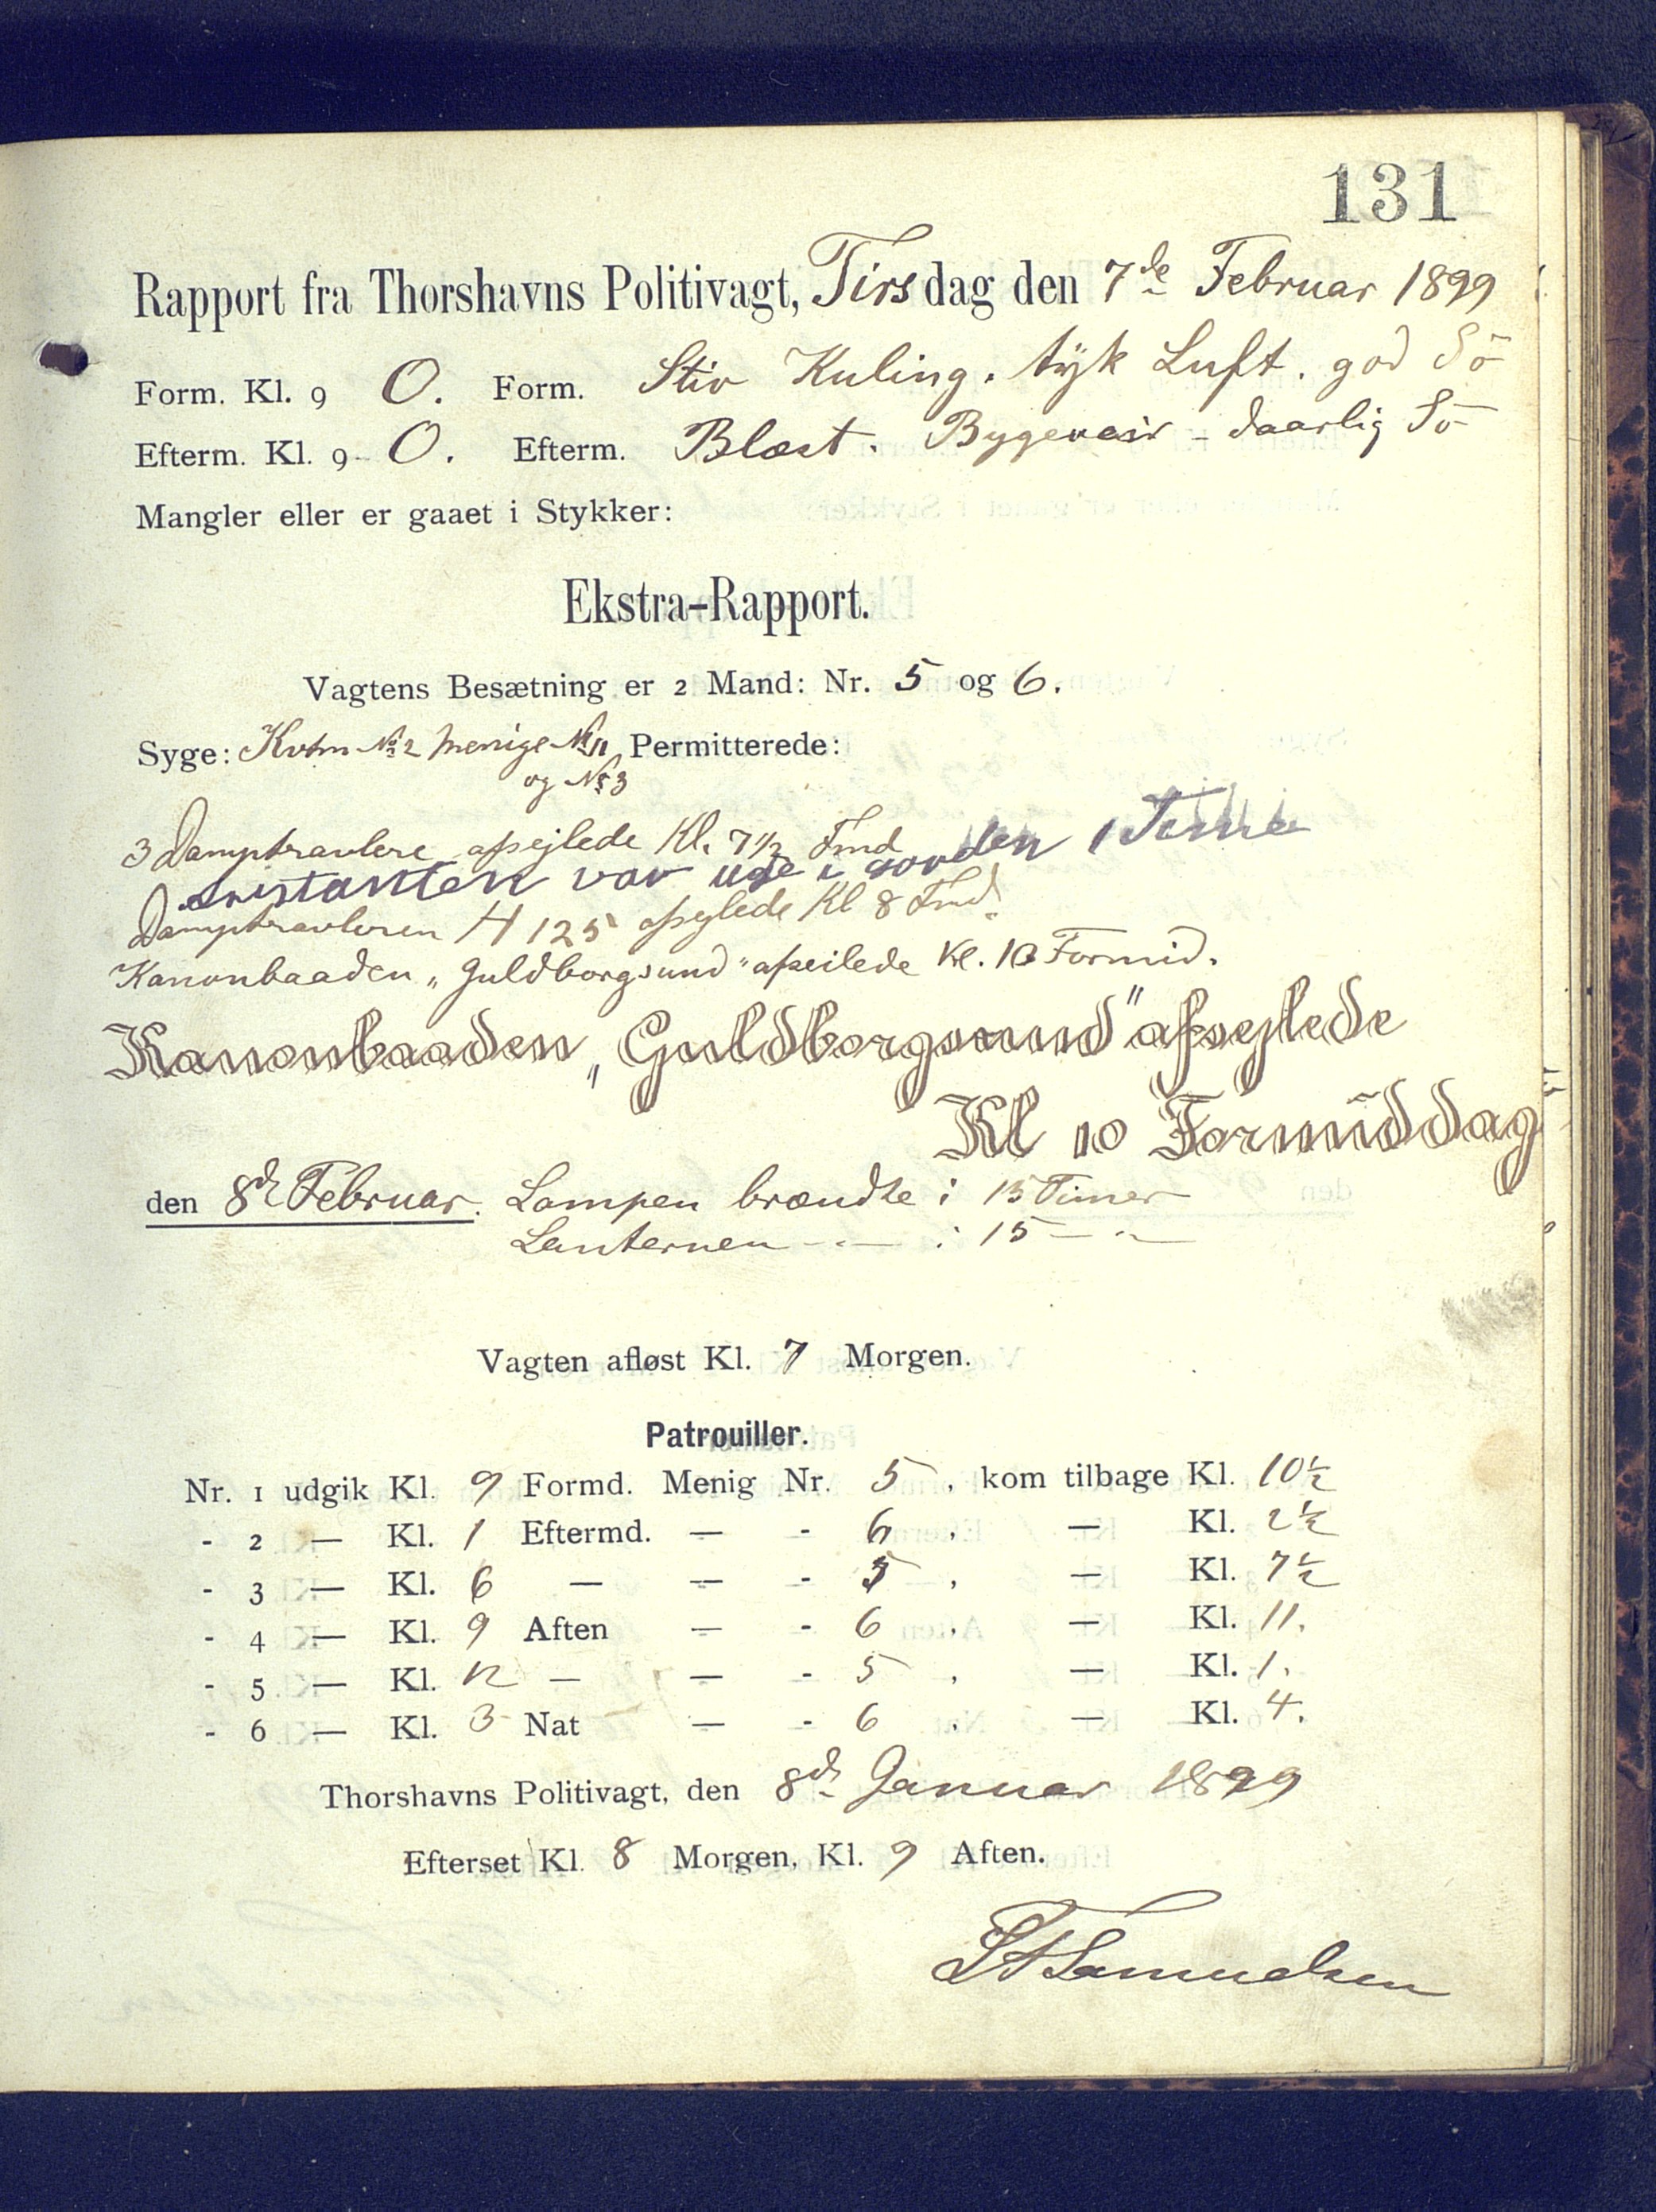 131
Rapport fra Thorshavns Politivagt, Tirsdag den 7de Februar 1899
Form. Kl. 9 O. Form. Stiv Kuling. tyk Luft. god Sö
Efterm. Kl. 9 O. Efterm. Blæst. Bygeveir - daarlig Sö
Mangler eller er gaaet i Stykker:
Ekstra-Rapport.
Vagtens Besætning er 2 Mand: Nr. 5 og 6.
Syge: Kvtm No 2 Menige No 11 Permitterede:
og No 3
3 Damptravlere afsejlede Kl. 7 1/2 Fmd
var ude i 1 Time
Damptravleren H 125 afsejlede Kl 8 Fmd.
Kanonbaaden „Guldborgsund" afseilede Kl. 10 Formid.
Kanonbaaden „Guldborgsund" afsejlede
Kl 10 Formiddag
den 8de Februar. Lampen brændte i 15 Timer
Lanternen — " — i 15 — " —
Vagten afløst Kl. 7 Morgen.
Patrouiller.
Nr. 1 udgik Kl. 9 Formd. Menig Nr. 5, kom tilbage Kl. 10½
- 2 — Kl. 1 Eftermd. — - 6, — Kl. 2½
- 3 — Kl. 6 — — - 5, — Kl. 7½
- 4 — Kl. 9 Aften — - 6, — Kl. 11.
- 5 — Kl. 12 — — - 5, — Kl. 1.
- 6 — Kl. 3 Nat — - 6, — Kl. 4.
Thorshavns Politivagt, den 8de Januar 1899
Efterset Kl. 8 Morgen, Kl. 9 Aften.
Samuelsen